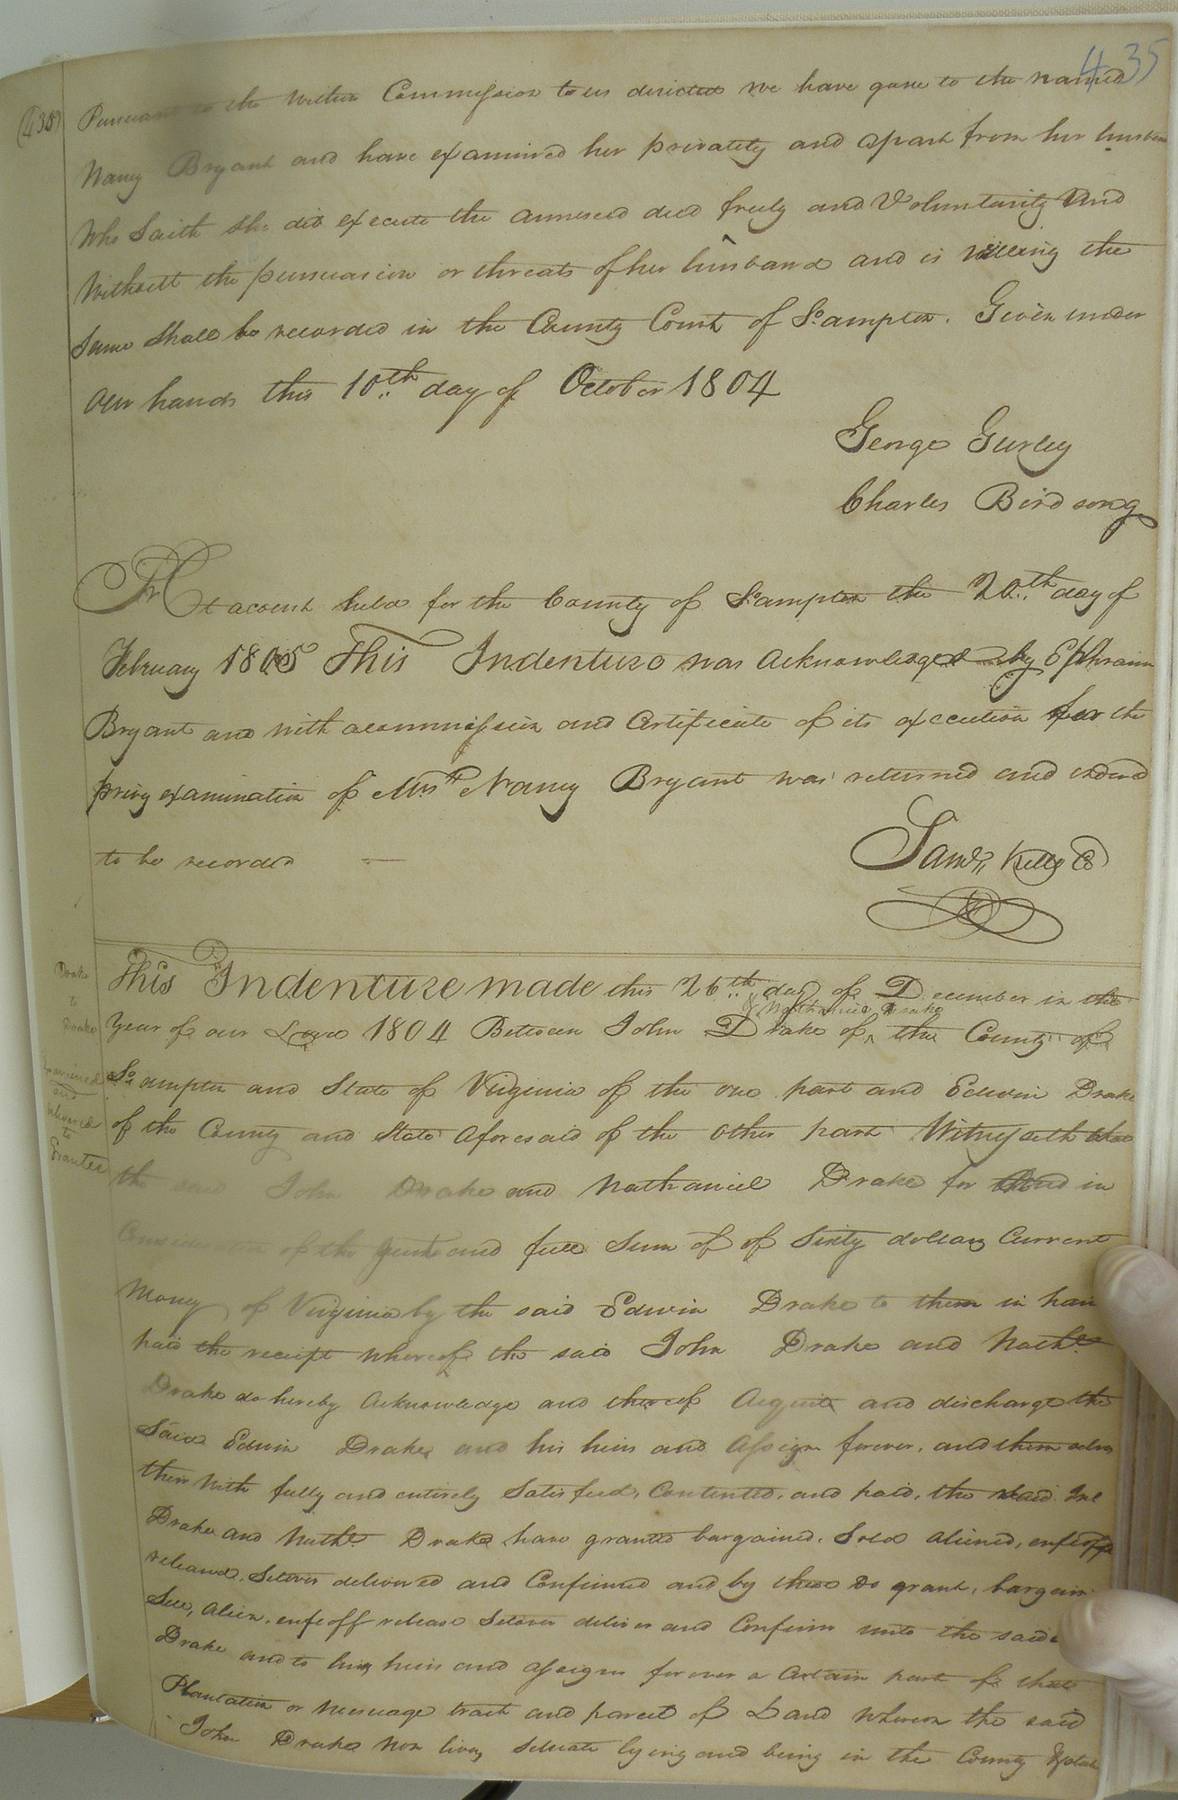 435
(435)
Pursuant to the within Commission to us directed we have gone to the named
Nancy Bryant and have examined her privately and apart from her husban
Who Saith she did execute the annexed deed freely and Voluntarily and
Without the persuasion or threats of her husband and is willing the
Same shall be recorded in the County Court of So.ampton. Given under
our hands this 10th day of October 1804
George Gurley
Charles Birdsong
At a court held for the County of So.ampton the 20th day of
February 1805 This Indenture was acknowledged by Ephraim
Bryant and with a commission and Certificate of its execution for the
privy examination of Mrs Nancy Bryant was returned and ordered
to be recorded
Saml Kello C
Drake
to
Drake
Examined
and
delivered
to
Grantee
This Indenture made this 26th day of December in the
& Nathaniel Drake
year of our Lord 1804 Between John Drake of ^ the County of
So.ampton and State of Virginia of the one part and Edwin Drake
of the County and State aforesaid of the other part Witnesseth that
the said John Drake and Nathaniel Drake for and in
Consideration of the just and full Sum of of Sixty dollars Current
Money of Virginia by the said Edwin Drake to them in han
paid the receipt whereof the said John Drake and Nathl
Drake do hereby Acknowledge and thereof Acquite and discharge the
Said Edwin Drake and his heirs and Assigns forever, and them
therewith fully and entirely Satisfied, Contented, and paid, the said Jno
Drake and Nathl Drake have granted bargained, Sold aliened, enfeoffe
released, Setover delivered and Confirmed and by these Do grant, bargain
Sell, alien, enfeoff release Setover deliver and Confirm unto the said
Drake and to his heirs and assigns forever a Certain part of that
Plantation or Messuage tract and parcel of Land whereon the said
John Drake Now lives, Situate lying and being in the County